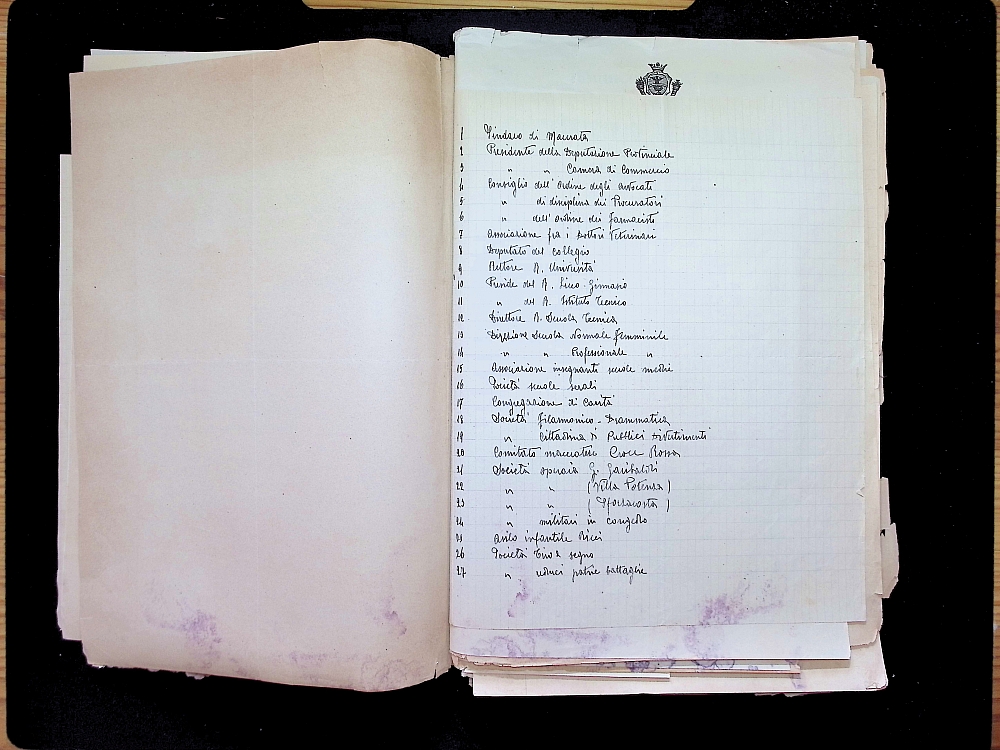 1 Sindaco di Macerata
2 Presidente della Deputazione Provinciale
3 " " Camera di Commercio
4 Consiglio dell'Ordine degli Avvocati
5 " di disciplina dei Procuratori
6 " dell'Ordine dei farmacisti
7 Associazione fra i Dottori Veterinari
8 Deputato del Collegio
9 Rettore R. Università
10 Preside del R. Liceo-Ginnasio
11 " del R. Istituto Tecnico
12 Direttore R. Scuola Tecnica
13 Direzione Scuola Normale femminile
14 " " Professionale "
15 Associazione insegnanti scuole medie
16 Società scuole serali
17 Congregazione di Carità
18 Società Filarmonico-Drammatica
19 " Cittadina di Pubblici Divertimenti
20 Comitato maceratese Croce Rossa
21 Società operaia G. Garibaldi
22 " " (Villa Potenza)
23 " " (Sforzacosta)
24 " militari in congedo
25 Asilo infantile Ricci
26 Società Tiro a segno
27 " reduci patrie battaglie